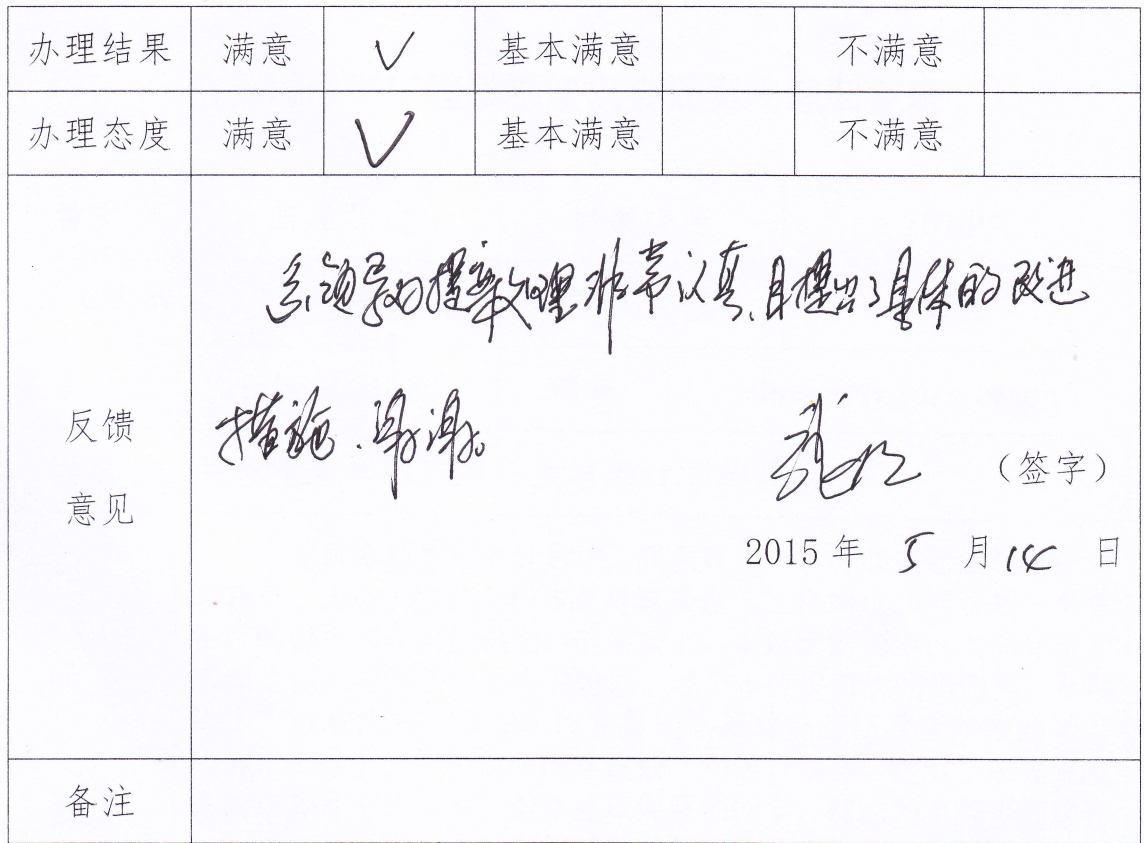 办理结果 满意 √ 基本满意 不满意
办理态度 满意 √ 基本满意 不满意
系领导对提案办理非常认真,且提出了具体的改进
反馈 措施、谢谢。
（签字）
意见
2015年 5 月 14 日
备注